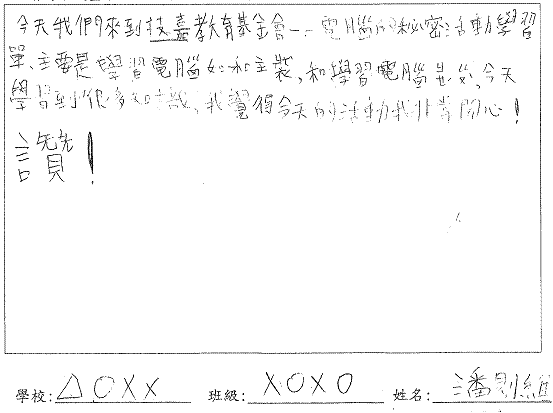 今天我們來到技嘉教育基金會——電腦的秘密活動學習
單、主要是學習電腦如和主裝,和學習電腦 今天
學習到很多知識,我覺得今天的活動我非常開心!
讚!
學校:△○XX 班級:XOXO 姓名:潘